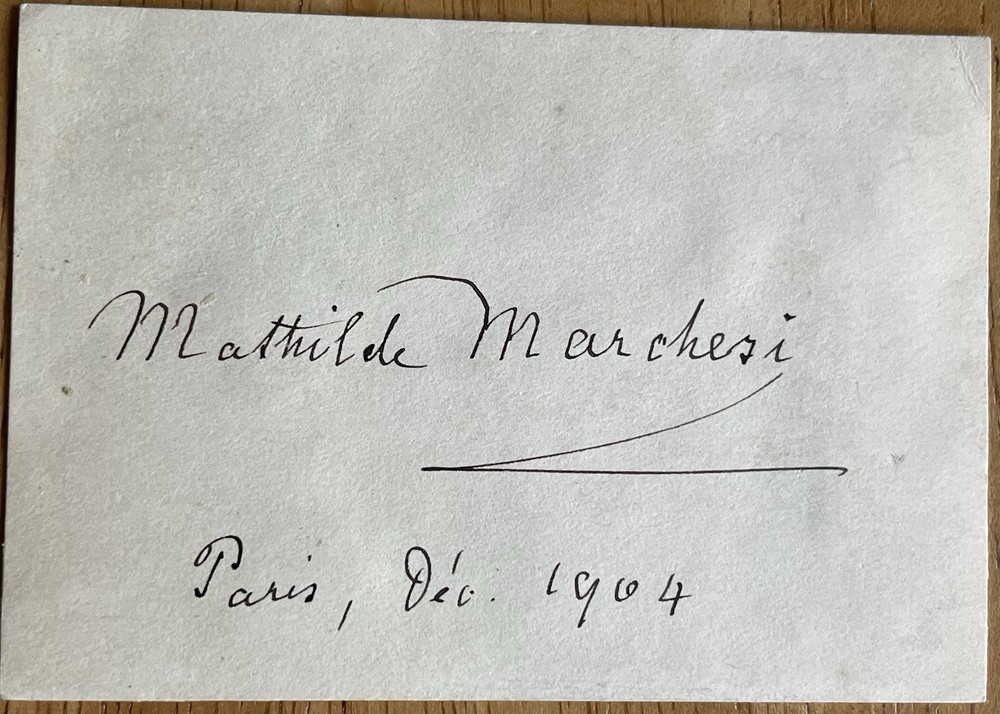 Mathilde Marchesi
Paris, Déc. 1904